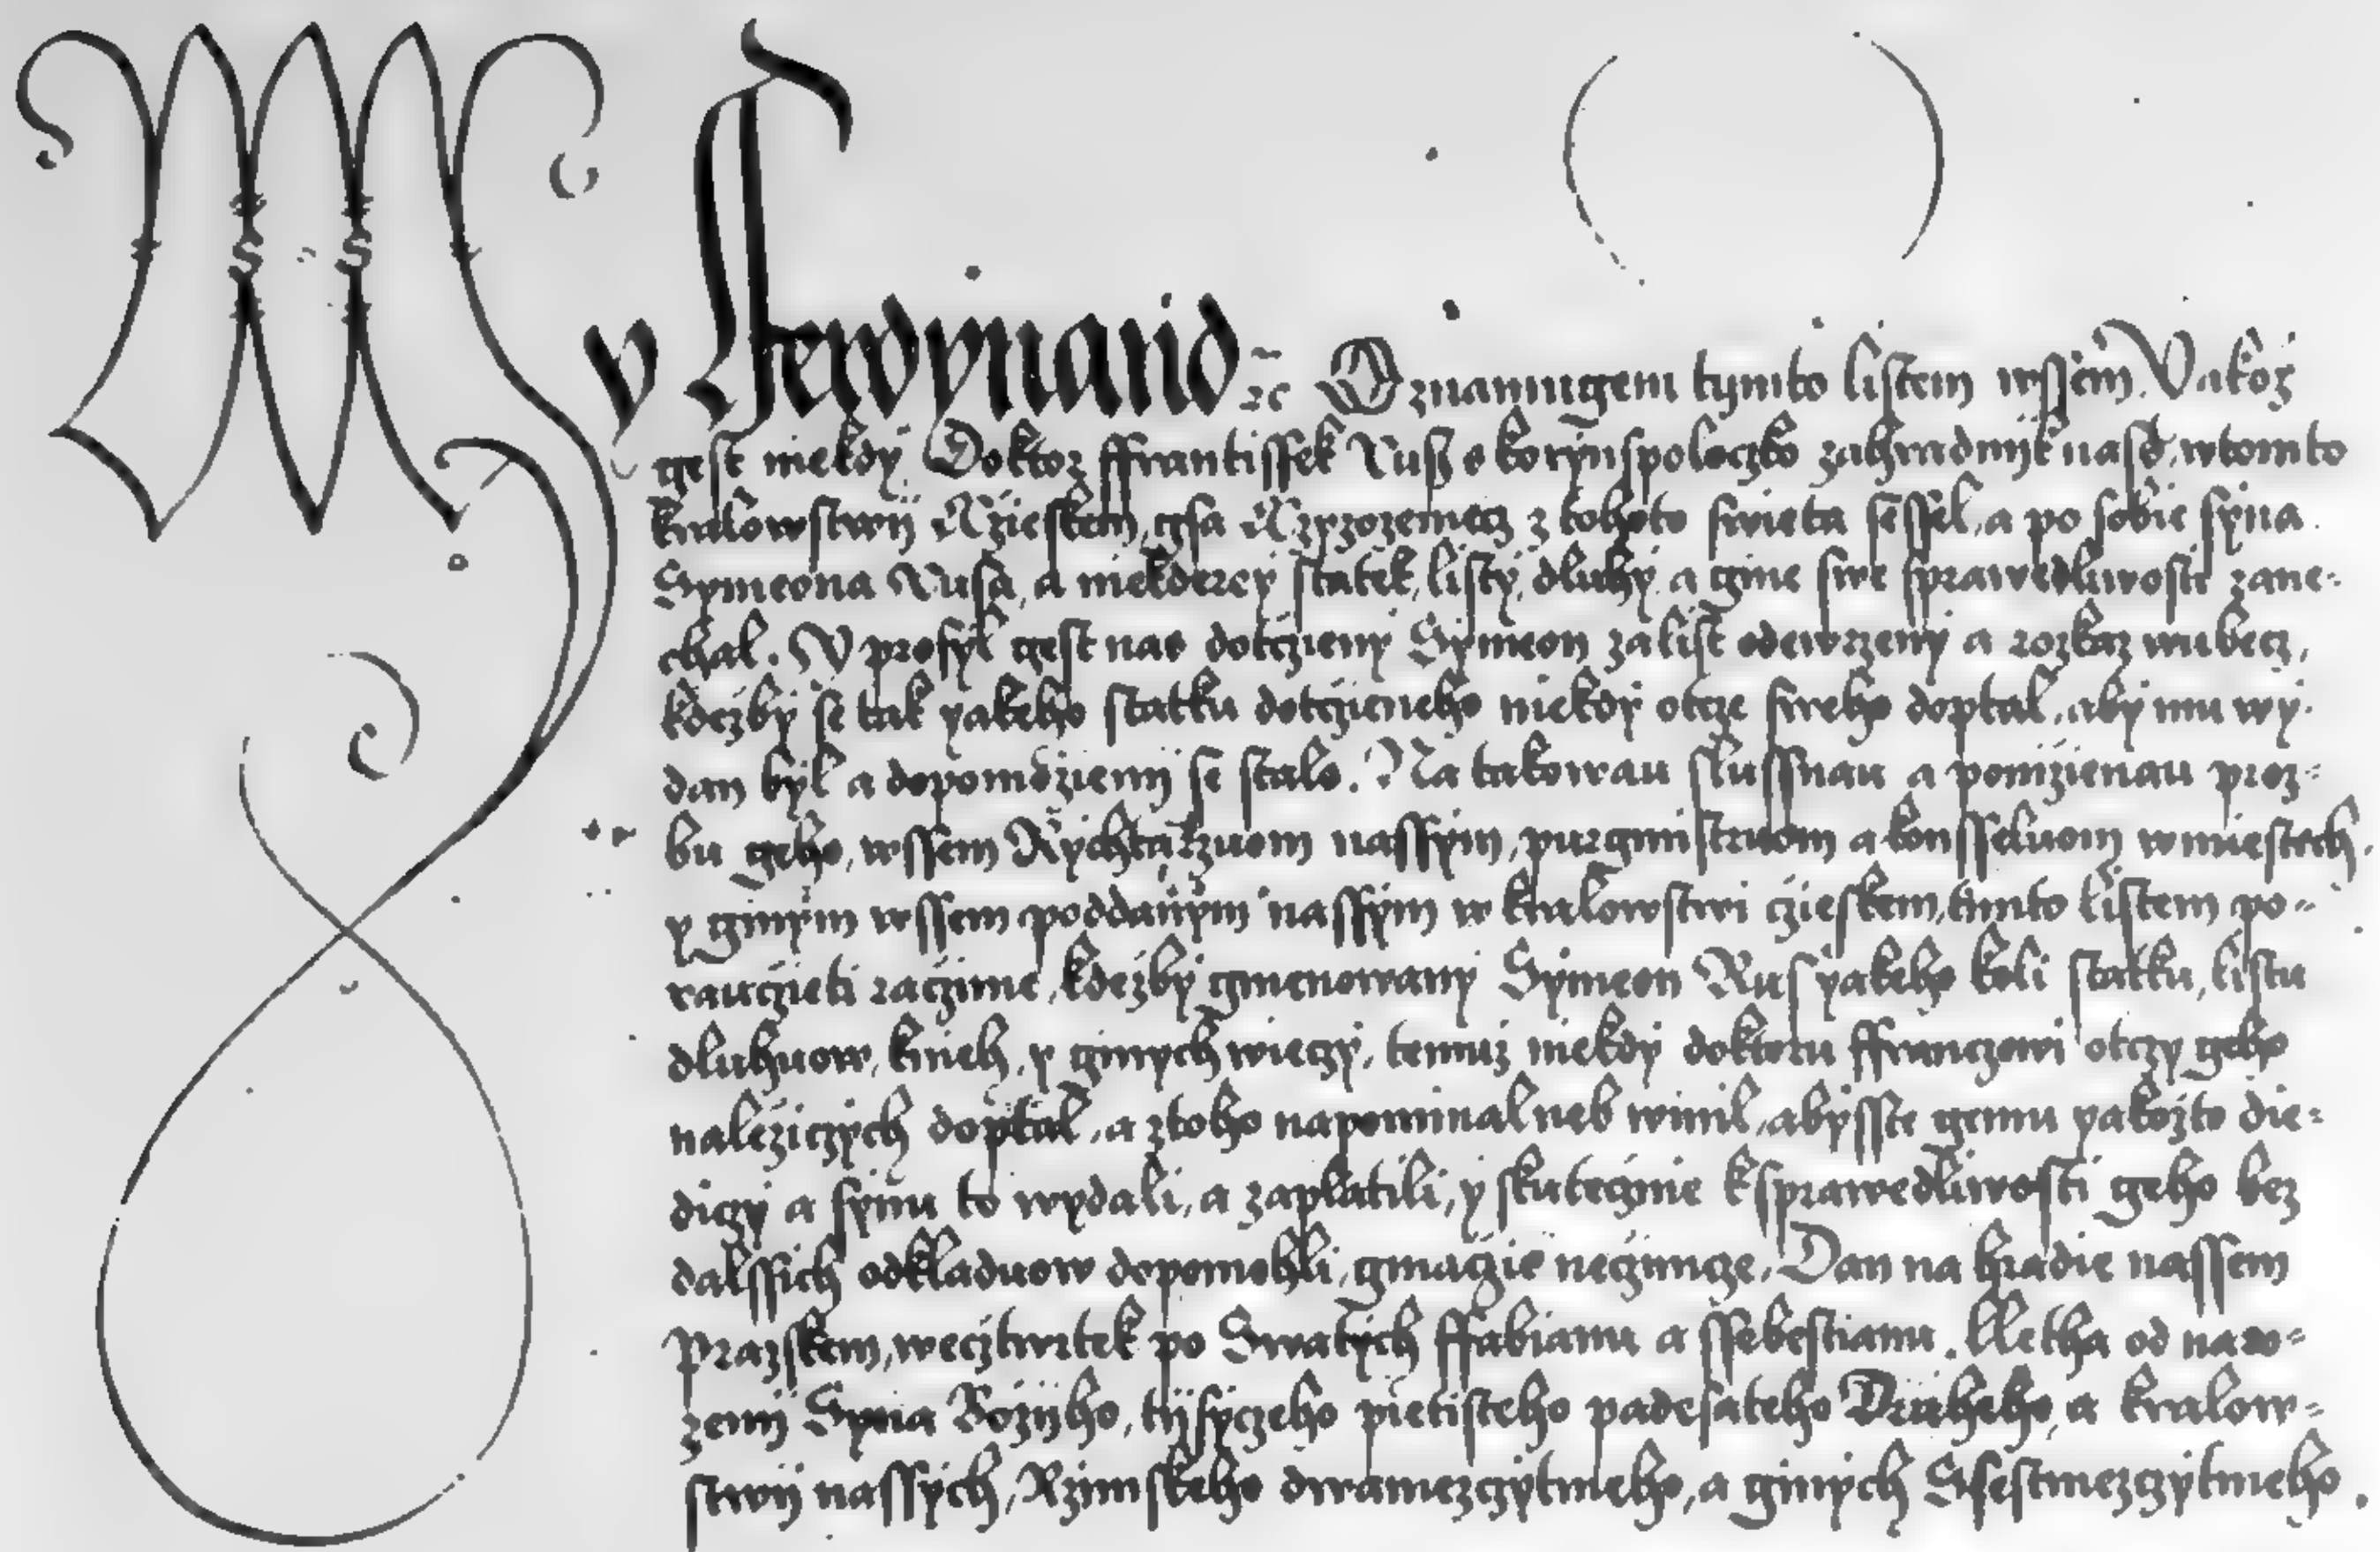 My Fferdynand ꝛc Oznamugem tymto listem wssem. Yakoz
gest niekdy Doktor ffrantissek Rus zahradnik nass, wtomto
kralowstwij Czieskem, gsa z tohoto swieta sessel, a po sobie syna
Symeona Rusa, a niekderey statek, listy, dluhy a gine swe sprawedlnosti zane-
chal. Y prosyl gest nas dotczieny Symeon za list odewrzeny a rozkaz wubecz,
kdezby se tak yakeho statku dotczieneho niekdy otcze sweho doptal, aby mu wy-
dan byl a dopomozienij se stalo. Na takowau slussnau a ponizienau proz-
bu geho, wssem Rychtarzuom nassym, purgmistruom a konsseluom wmiestech,
y ginym wssem poddanym nassym w kralowstwi czieskem, timto listem po-
rauczieti raczime, kdezby gmenowany Symeon Rus yakeho koli statku, listu
dluhuow, knieh, y ginych wieczy, temuz niekdy doktoru ffranczowi otczy geho
nalezicych doptal, a ztoho napominal neb winil, abysste gemu yakozto die-
diczy a synu to wydali, a zaplatili, y skutecznie k sprawedliwosti geho bez
dalssich odkladuow dopomohli, gmaczie neczinicze. Dan na hradie nassem
Prazskem, wecztwrtek po Swatych ffabianu a ssebestianu. Lletha od naro-
zenij Syna Bozijho, tijsyczeho pietisteho padesateho Druheho, a kralow-
stwij nassych, Rzimskeho dwamezczytmeho, a ginych Ssestmezczytmeho.